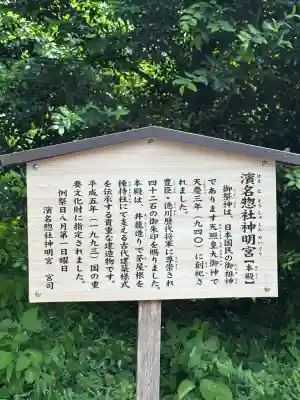 濱名惣社神明宮【本殿】
はまなそうしゃしんめいぐう
御祭神は、日本国民の御祖神
であります天照皇大御神で
天慶三年（九四〇）に創祀さ
れました。
豊臣、徳川歴代将軍に尊崇され
四十二石の御朱印を賜りました。
本殿は、井籠造りで茅屋根を
棟持柱にて支える古代建築様式
を伝承する貴重な建造物です。
平成五年（一九九三）国の重
要文化財に指定されました。
例祭日八月第一日曜日
濱名惣社神明宮　宮司